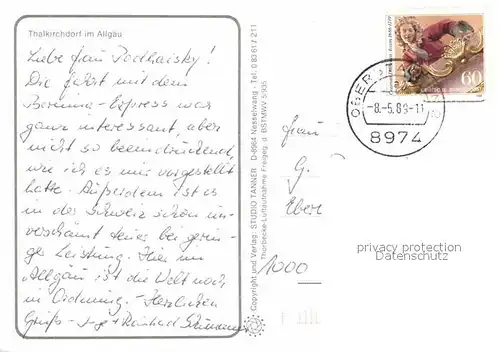 Thalkirchdorf im Allgäu
Liebe Frau Podhaisky!
Die Fahrt mit dem
Bernina-Express war
ganz interessant, aber
nicht so beeindruckend,
wie ich es mir vorgestellt
hatte. Außerdem ist es
in der Schweiz schon un-
verschämt teuer bei gerin-
ger Leistung. Hier im
Allgäu ist die Welt noch
in Ordnung. - Herzlichen
Gruß - + Reinhard
Copyright und Verlag: STUDIO TANNER D-8964 Nesselwang - Tel. 08361/211
Thorbecke-Luftaufnahme Freigeg. d. BSTMWV 5305
Frau
G.
Ebert
1000
60
-8.-5.86-11
8974
privacy protection
Datenschutz